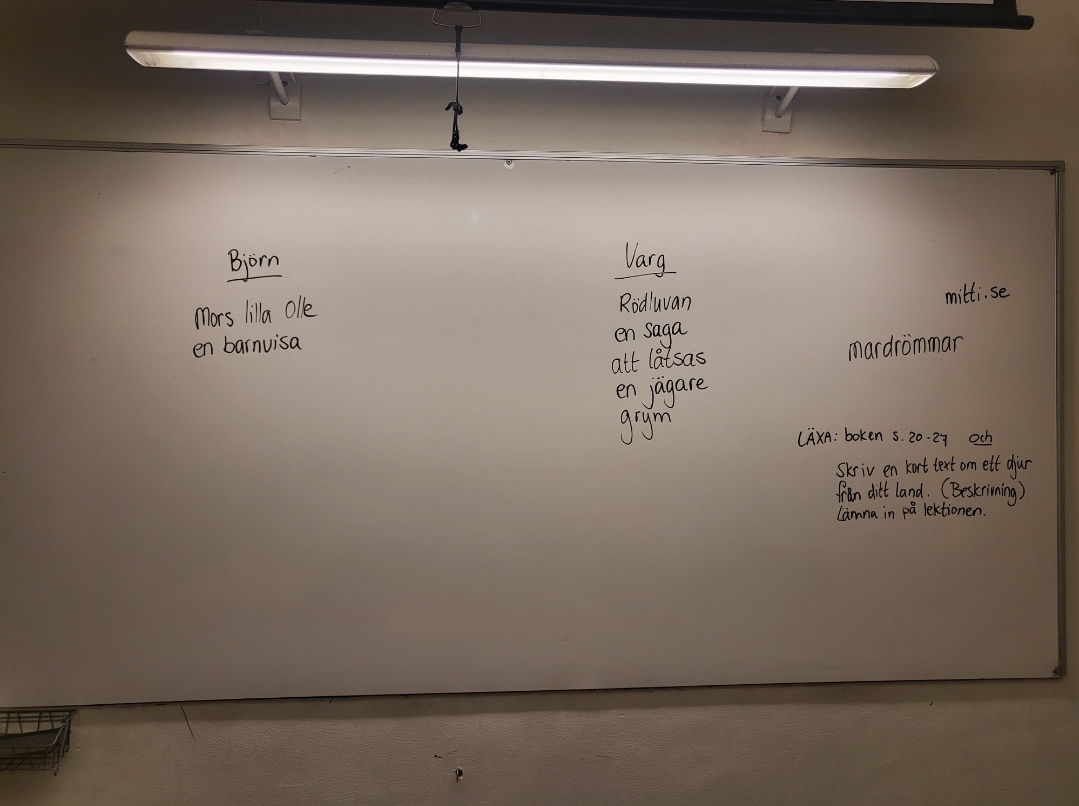 Björn
Mors lilla Olle
en barnvisa
Varg
Rödluvan
en saga
att låtsas
en jägare
grym
mitti.se
mardrömmar
LÄXA: boken s. 20-27 och
Skriv en kort text om ett djur
från ditt land. (Beskrivning)
Lämna in på lektionen.